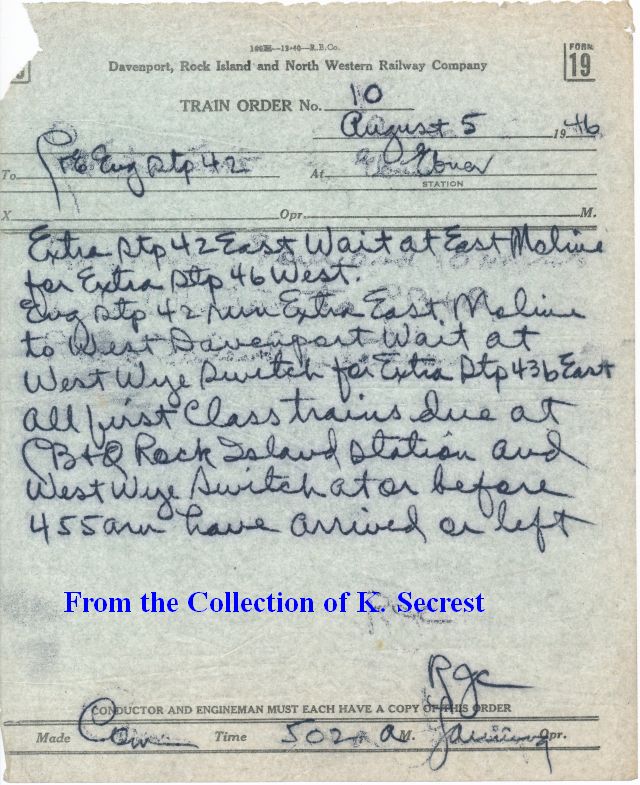 160M—12-40—R.B.Co.
Davenport, Rock Island and North Western Railway Company
FORM 19
TRAIN ORDER No. 10
August 5 1946
To C&E Eng Rtp 42 At Ebner
STATION
X Opr. M.
Extra Rtp 42 East Wait at East Moline
for Extra Rtp 46 West.
Eng Rtp 42 run Extra East Moline
to West Davenport Wait at
West Wye Switch for Extra Rtp 436 East
all first Class trains due at
CB+Q Rock Island Station and
West Wye Switch at or before
455am have arrived or left
From the Collection of K. Secrest
RJC
CONDUCTOR AND ENGINEMAN MUST EACH HAVE A COPY OF THIS ORDER
Made Com Time 502 a M. Opr.